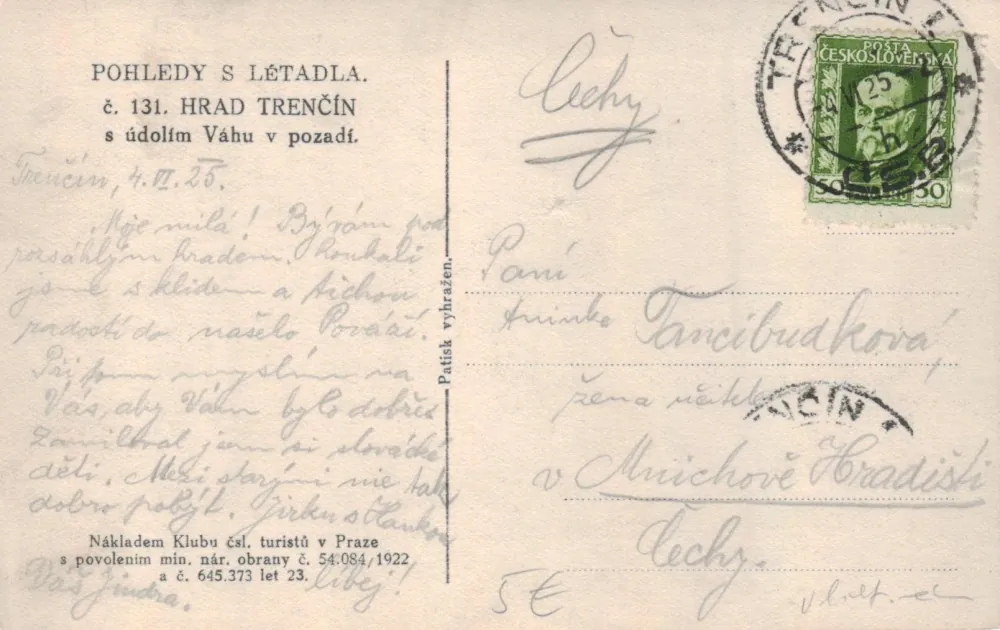 POHLEDY S LÉTADLA.
č. 131. HRAD TRENČÍN
s údolím Váhu v pozadí.
Trenčín, 4. VI. 25.
Moje milá! Bývám pod
rozsáhlým hradem. Koukali
jsme s klidem a tichou
radostí do našeho Považí.
Při tom myslím na
Vás, aby Vám bylo dobře
Zamiloval jsem si slovácké
děti. Mezi starými nie tak
dobro pobýt. Jirku s Hankou
líbej!
Váš Jindra.
Nákladem Klubu čsl. turistů v Praze
s povolením min. nár. obrany č. 54.084/1922
a č. 645.373 let 23.
Patisk vyhražen.
Čechy
TRENČÍN 1
4 VI 25
ČSR
POŠTA
ČESKOSLOVENSKÁ
50 50
Paní
Aninka Tancibudková,
žena učitele
TRENČÍN 1
v Mnichově Hradišti
Čechy.
5 €